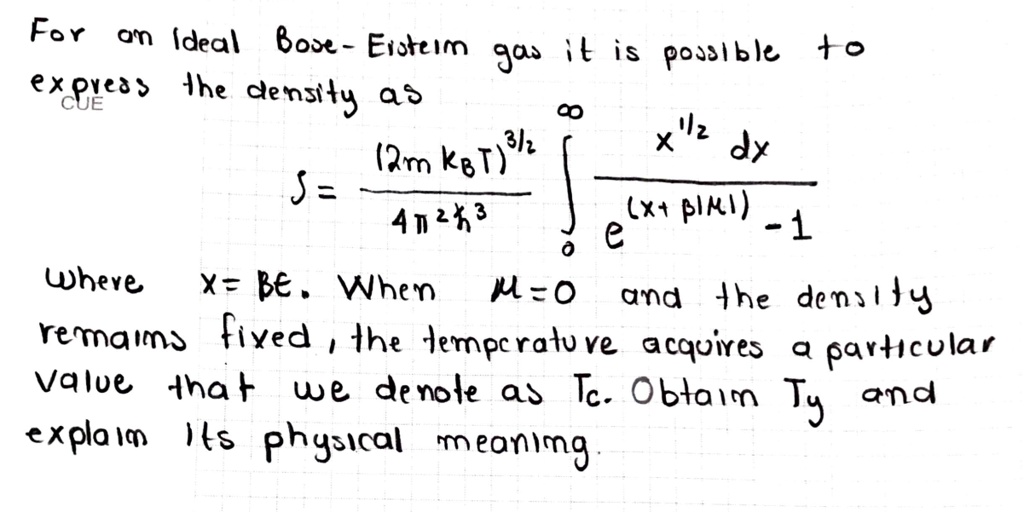 For an Ideal Bose-Eistein gas it is possible to
express the density as
CUE
ρ = (2m k_B T)^{3/2} / 4π²ħ³ ∫_0^∞ x^{1/2} dx / e^{(x+β|μ|)} - 1
where x = βE. When μ=0 and the density
remains fixed, the temperature acquires a particular
value that we denote as Tc. Obtain Ty and
explain its physical meaning.